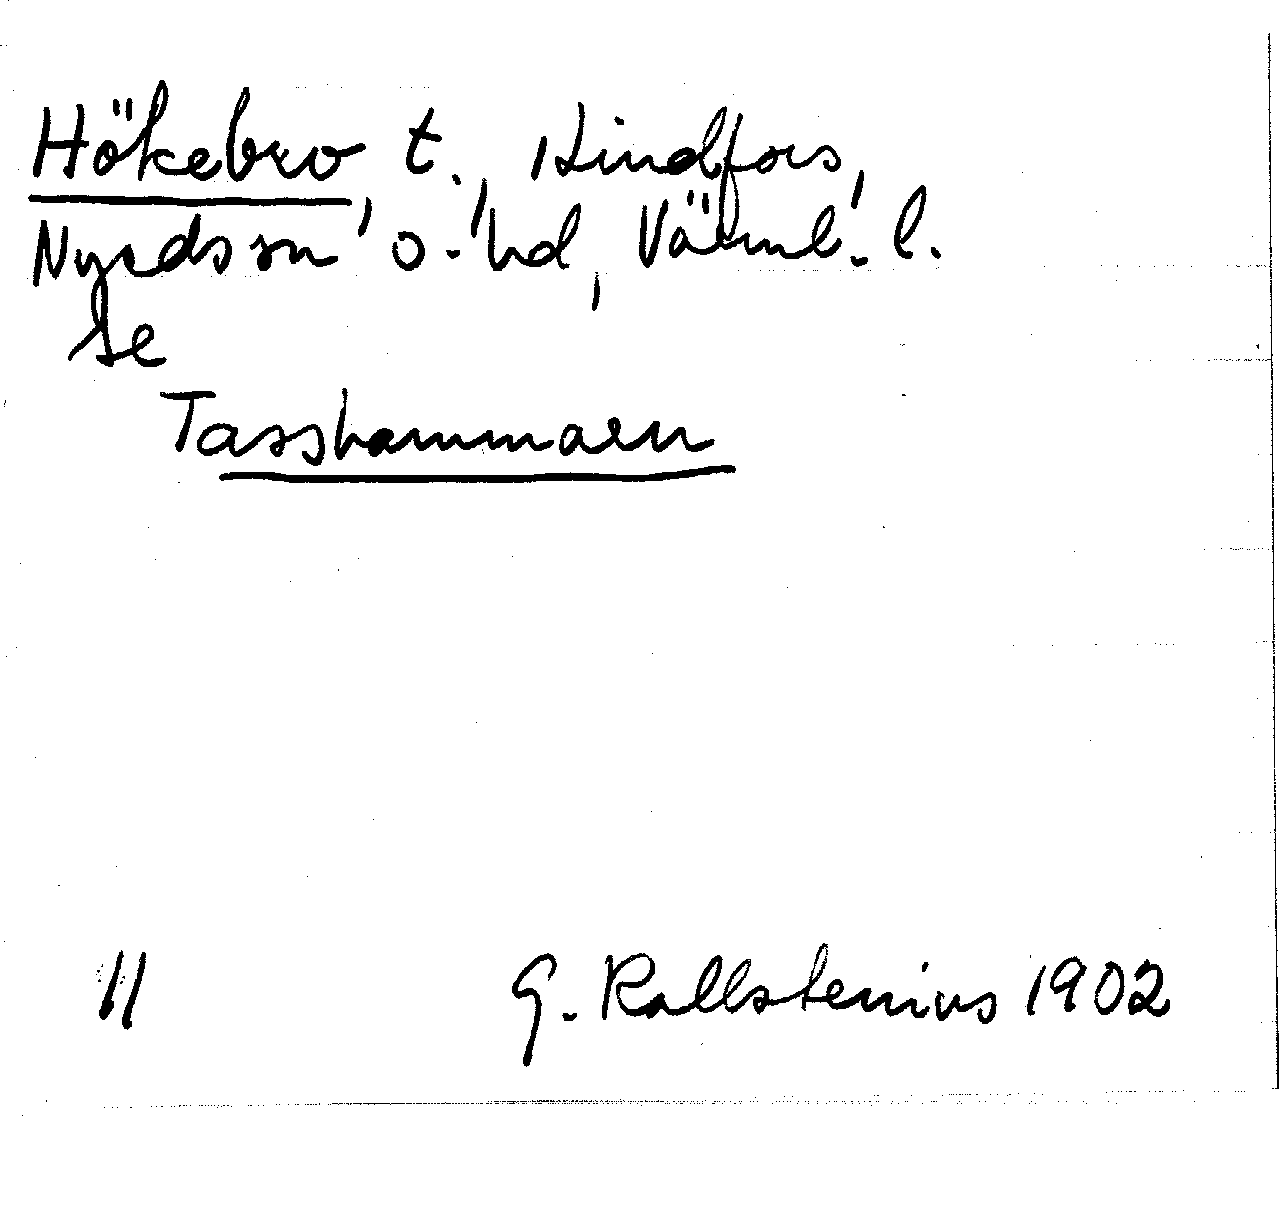 Hökebro, t., Lindfors,
Nyeds sn o. hd, Värml. l.
se
Tasshammaren
11 G. Kallstenius 1902